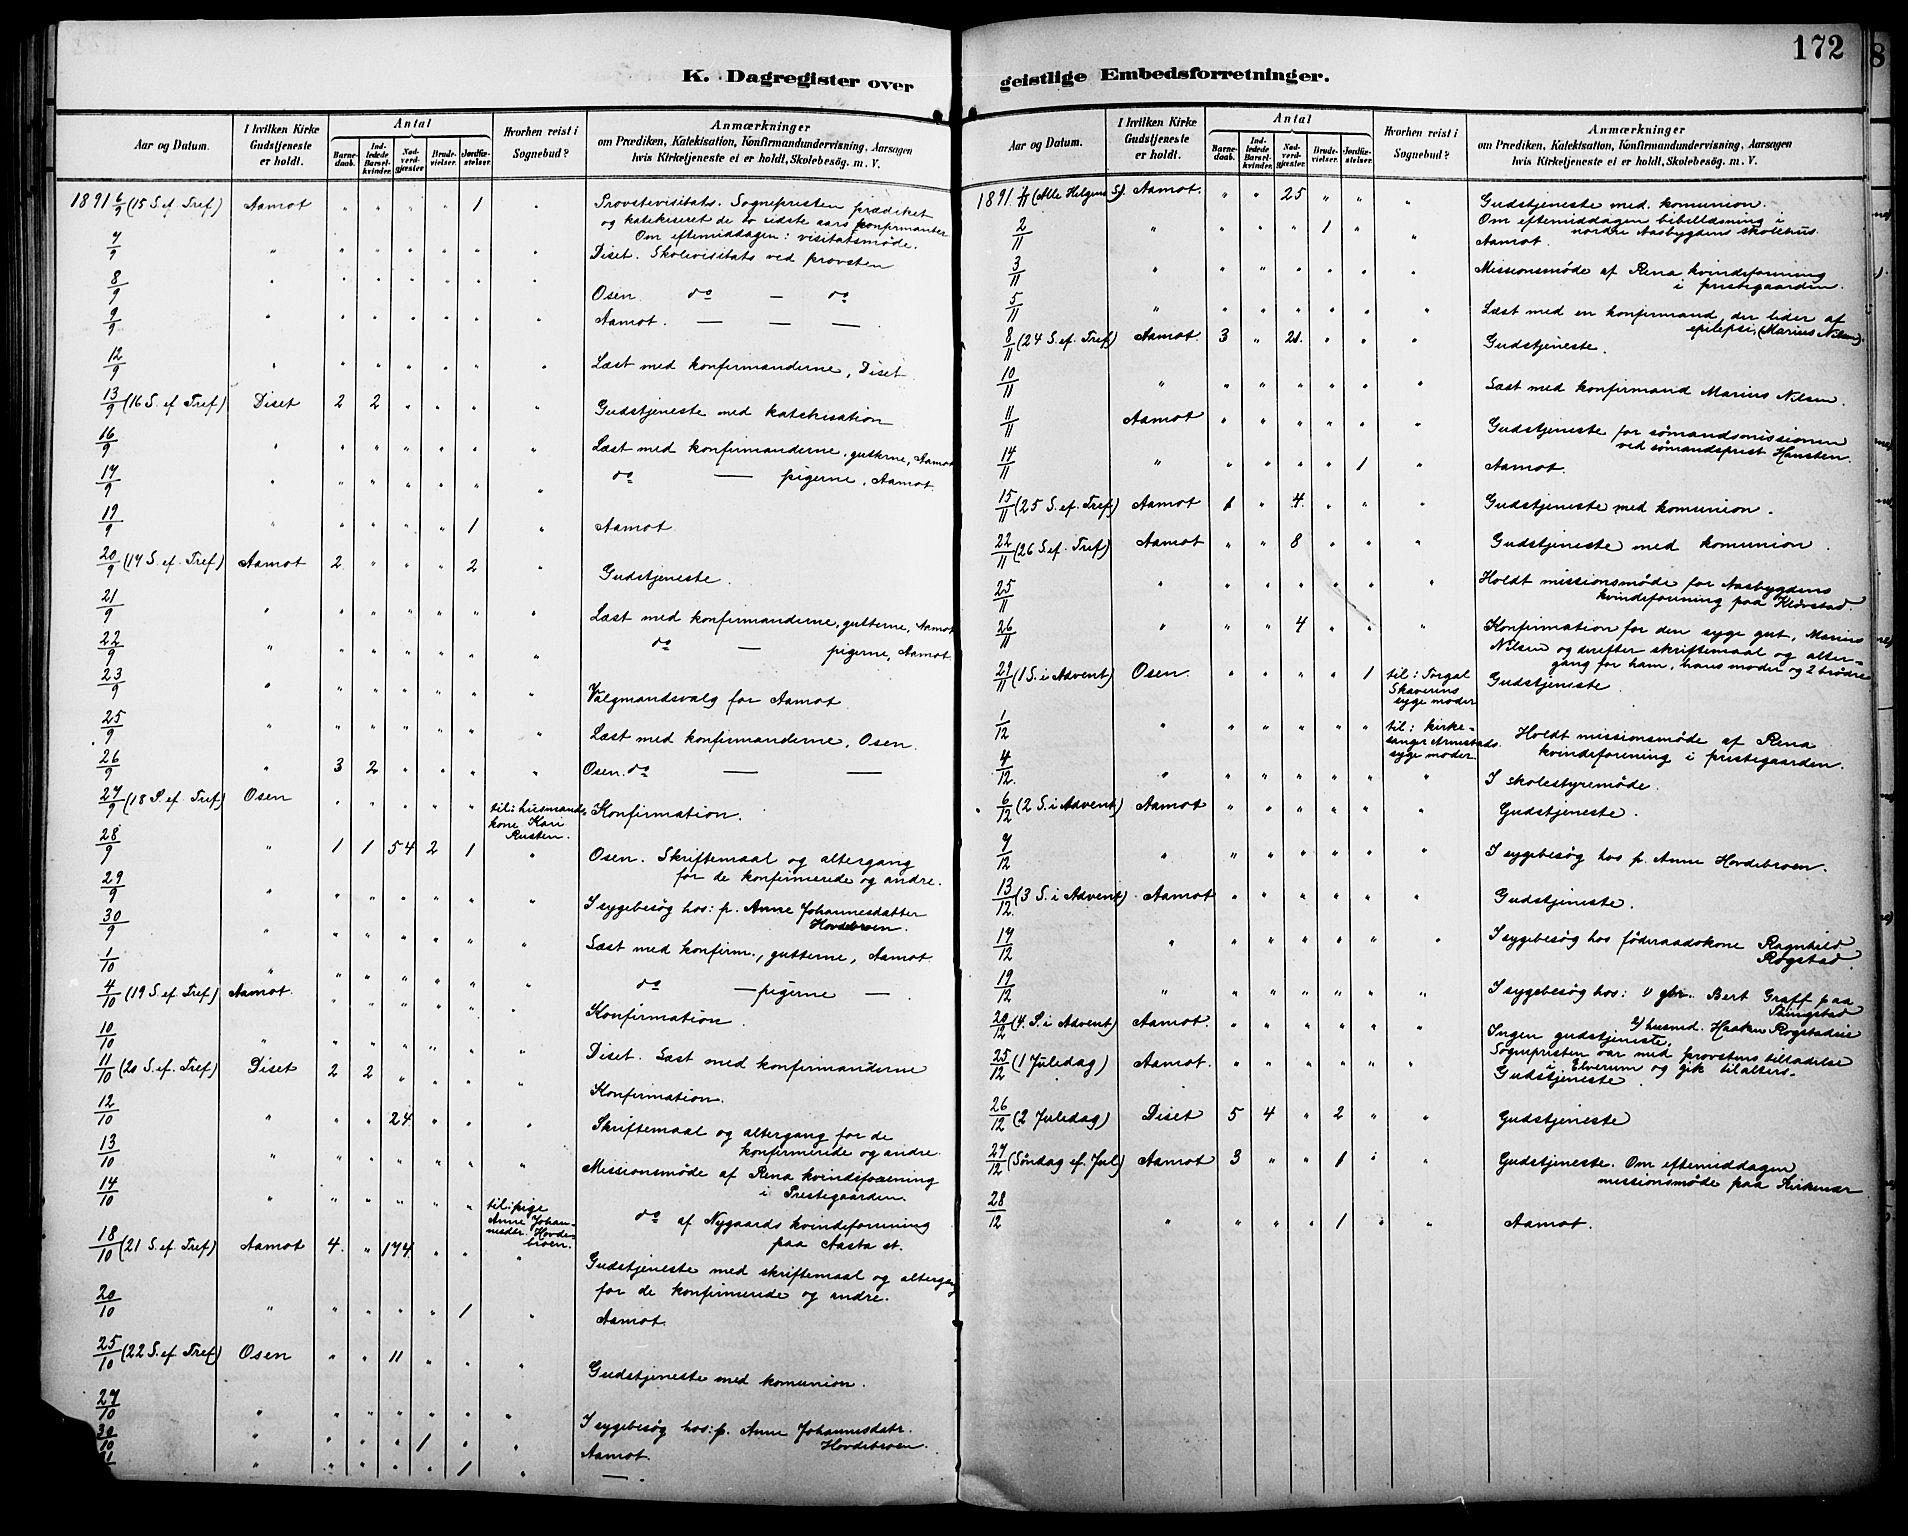 K. Dagregister over
Aar og Datum. I hvilken Kirke Gudstjeneste er holdt. Antal Barnedaab. Indledede Barselkvinder. Nadverdgjæster. Brudevielser. Jordfæstelser. Hvorhen reist i Sognebud? Anmærkninger om Prædiken, Katekisation, Konfirmandundervisning, Aarsagen hvis Kirketjeneste ei er holdt, Skolebesög. m. V.
1891 6/9 (15 S. ef. Tref) Aamot " " " " 1 " Provstevisitats. Sognepresten prædiket
og katekiseret de to sidste aars konfirmanter
Om eftemiddagen: visitatsmöde.
7/9 " " " " " " " Diset. Skolevisitats ved provsten
8/9 " " " " " " " Osen do — do
9/9 " " " " " " " Aamot. — — —
12/9 " " " " " " " Læst med konfirmanderne, Diset
13/9 (16 S. ef Tref) Diset 2 2 " " " " Gudstjeneste med katekisation
16/9 " " " " " " " Læst med konfirmanderne, gutterne, Aamot
17/9 " " " " " " " do — pigerne, Aamot.
19/9 " " " " " 1 " Aamot
20/9 (17 S. ef. Tref) Aamot 2 " " " 2 " Gudstjeneste.
21/9 " " " " " " " Læst med konfirmanderne, gutterne, Aamot
22/9 " " " " " " " do — pigerne, Aamot
23/9 " " " " " " " Valgmandsvalg for Aamot
25/9 " " " " " " " Læst med konfirmanderne, Osen.
26/9 " 3 2 " " " " Osen. do — —
27/9 (18 S. ef Tref) Osen " " " " " til: husmands- Konfirmation.
kone Kari
Rusten.
28/9 " 1 1 54 2 1 " Osen. Skriftemaal og altergang
for de konfirmerede og andre.
29/9 " " " " " " " I sygebesøg hos: p. Anne Johannesdatter
Hovdebroen.
30/9 " " " " " " " Læst med konfirm., gutterne, Aamot
1/10 " " " " " " " do — pigerne —
4/10 (19 S. ef. Tref) Aamot. " " " " " " Konfirmation.
10/10 " " " " " " " Diset. Læst med konfirmanderne
11/10 (20 S. ef. Tref) Diset 2 2 " " " " Konfirmation.
12/10 " " " 24 " " " Skriftemaal og altergang for de
konfirmerede og andre.
13/10 " " " " " " " Missionsmöde af Rena kvindeforening
i Prestegaarden.
14/10 " " " " " " til: pige do af Nygaards kvindeforening
Anne Johan-
nesdr. Hovde-
broen. paa Aasta st.
18/10 (21 S. ef Tref) Aamot 4 " 174 " " " Gudstjeneste med skriftemaal og altergang
for de konfirmerede og andre.
20/10 " " " " " 1 " Aamot.
25/10 (22 S. ef Tref) Osen " " 11 " " " Gudstjeneste med komunion.
27/10 " " " " " " " I sygebesøg hos: p. Anne Johannesdatr.
Hovdebroen.
30/10 " " " " 1 " " Aamot.
" " " " " 1 " —
172
geistlige Embedsforretninger.
Aar og Datum. I hvilken Kirke Gudstjeneste er holdt. Antal Barnedaab. Indledede Barselkvinder. Nadverdgjæster. Brudevielser. Jordfæstelser. Hvorhen reist i Sognebud? Anmærkninger om Prædiken, Katekisation, Konfirmandundervisning, Aarsagen hvis Kirketjeneste ei er holdt, Skolebesög. m. V.
1891. 1/11 (Alle Helgens S). Aamot. " " 25 " " " Gudstjeneste med komunion.
Om eftemiddagen bibellæsning i
nordre Aasbygdens skolehus.
2/11 " " " " 1 " " Aamot.
3/11 " " " " " " " Missionsmöde af Rena kvindeforening
i prestegaarden.
5/11 " " " " " " " Læst med en konfirmand, der lider af
epilepsi, (Marius Nilsen).
8/11 (24 S. ef. Tref) Aamot. 3 " 21. " " " Gudstjeneste.
10/11 " " " " " " " Læst med konfirmand Marius Nilsen.
11/11 Aamot " " " " " " Gudstjeneste for sømandsmissionen
ved sømandsprest Hansten.
14/11 " " " " " 1 " Aamot.
15/11 (25 S. ef. Tref) Aamot 1 " 4. " " " Gudstjeneste med komunion.
22/11 (26 S. ef. Tref) Aamot " " 8 " " " Gudstjeneste med komunion.
25/11 " " " " " " " Holdt missionsmöde for Aasbygdens
kvindeforening paa Kløvstad.
26/11 " " " 4 " " " Konfirmation for den syge gut, Marius
Nilsen og derefter skriftemaal og alter-
gang for ham, hans moder og 2 brødre
29/11 (1 S. i Advent) Osen. " " " " 1 til: Torgal Gudstjeneste.
Skaverens
syge moder
1/12 " " " " " " til: kirke- Holdt missionsmöde af Rena
sanger Arnestads
syge moder. kvindeforening i prestegaarden.
4/12. " " " " " " " I skolestyremöde.
6/12 (2 S. i Advent) Aamot " " " " " " Gudstjeneste.
9/12 " " " " " " " I sygebesøg hos p. Anne Hovdebroen.
13/12. (3 S. i Advent) Aamot " " " " " " Gudstjeneste.
17/12 " " " " " " " I sygebesøg hos føderaadskone Ragnhild
Rogstad.
19/12 " " " " " " " I sygebesøg hos: 1) gbr. Bert Graff paa
Tbingstad
2) husmd. Haaken Rogstadeie
20/12 (4. S. i Advent) Aamot. " " " " " " Ingen gudstjeneste.
Sognepresten var med provstens tilladelse
i Elverum og gik tilalters.
25/12 (1 Juledag) Aamot. " " " " " " Gudstjeneste.
26/12 (2 Juledag) Diset 5 4 " 2 " " Gudstjeneste
27/12 (Søndag ef. Jul) Aamot 3 " " 1 " " Gudstjeneste. Om eftemiddagen
missionsmöde paa Kirkenær
28/12 " " " " 1 " " Aamot.